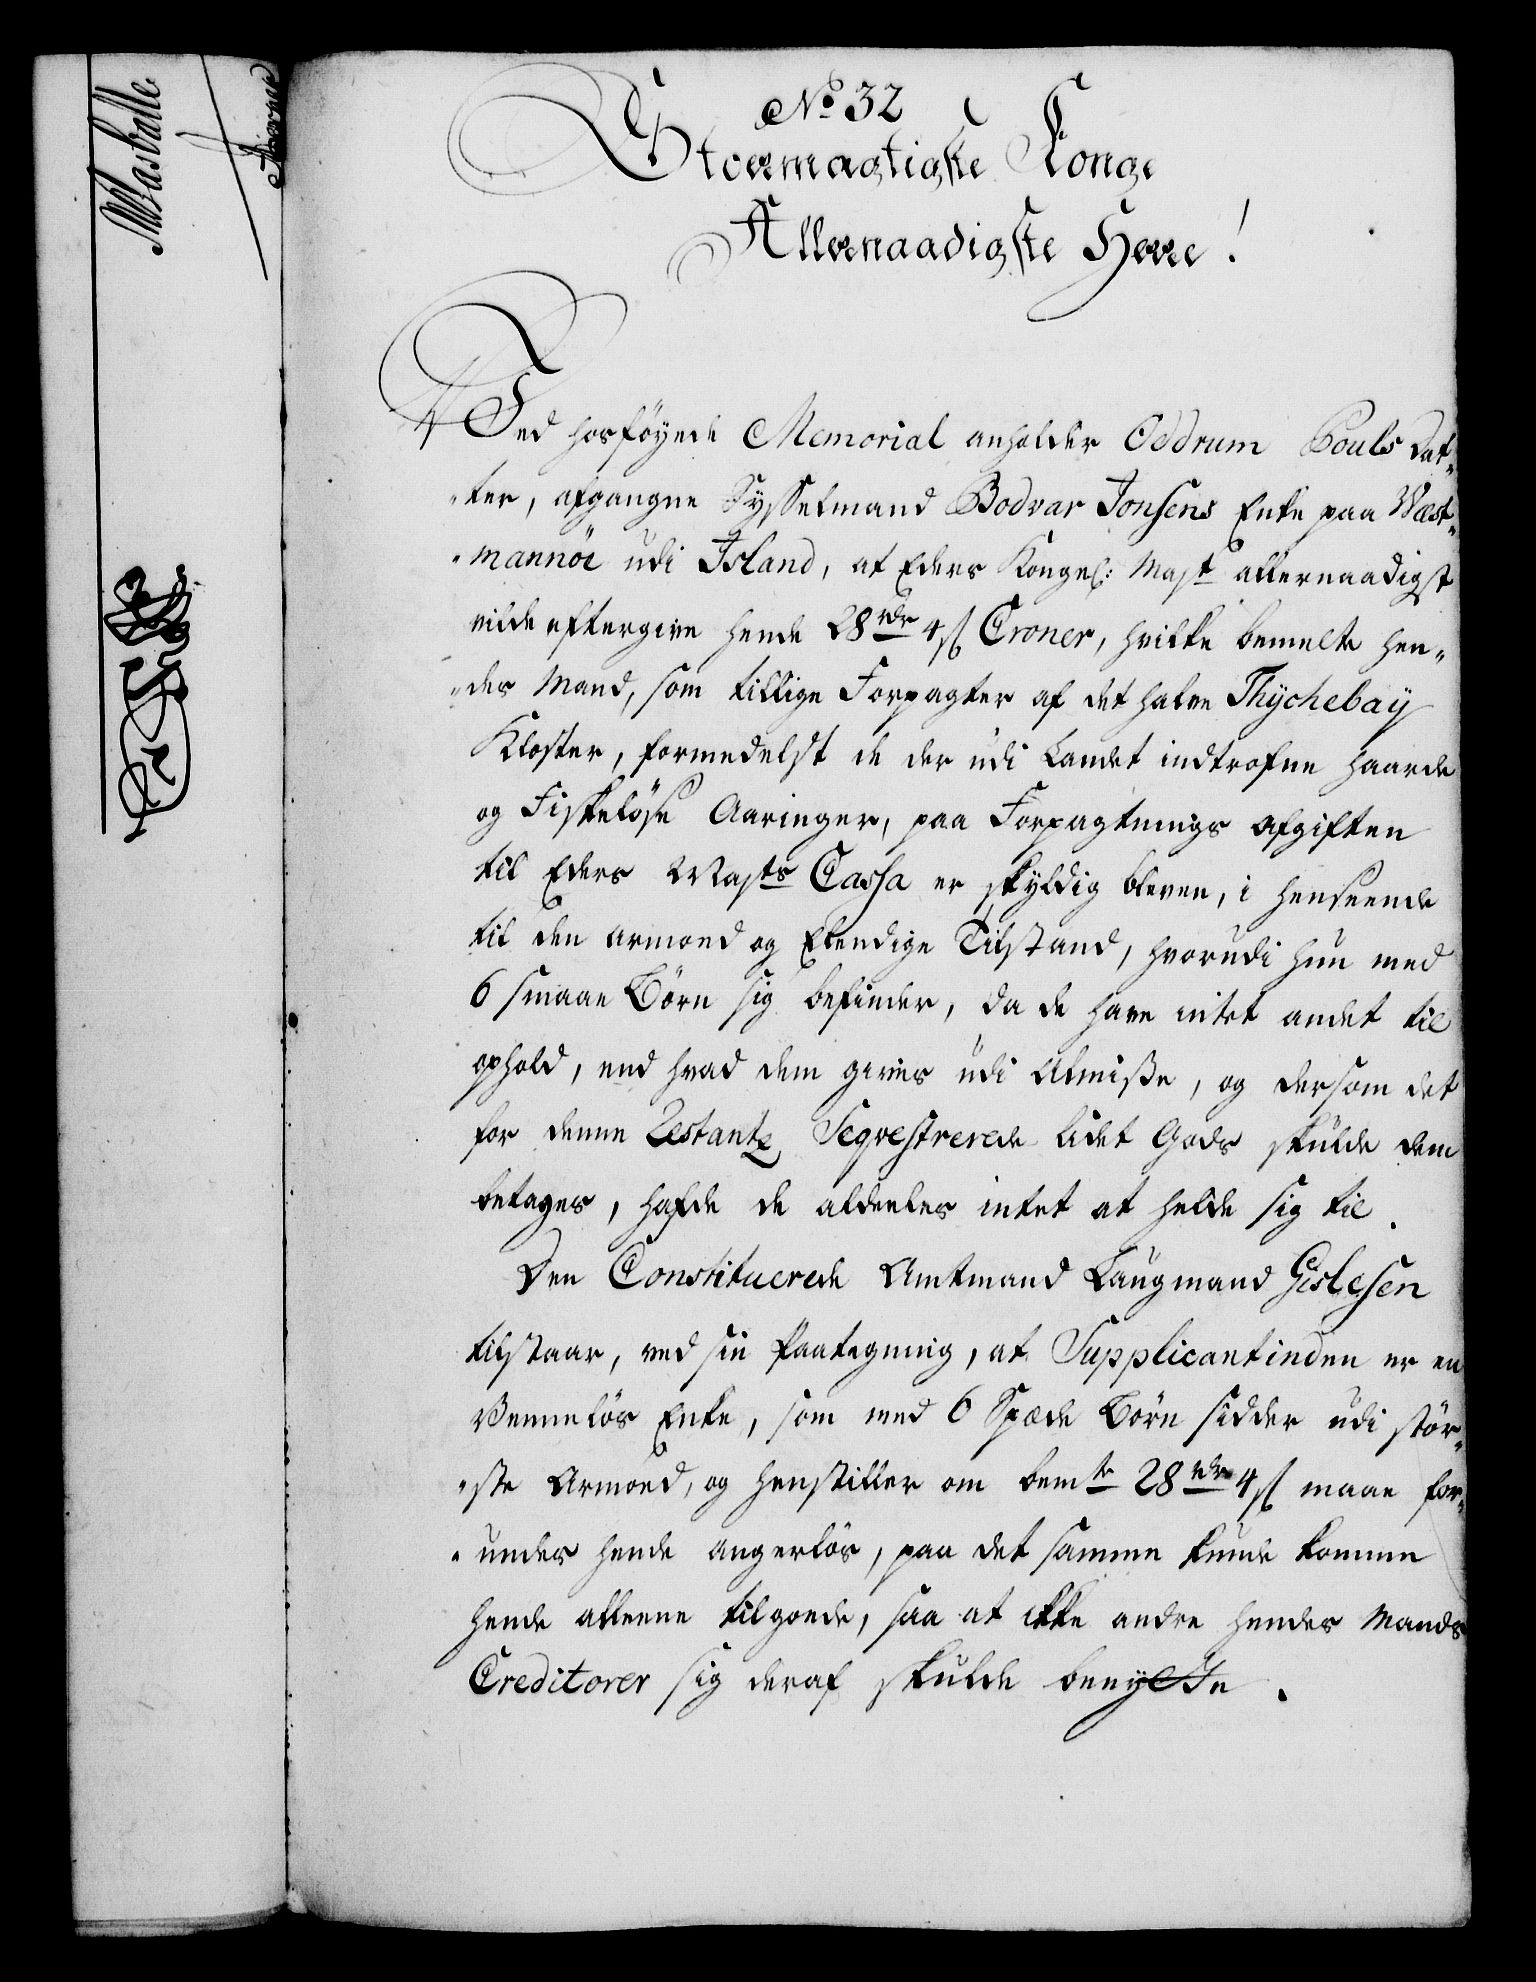 No 32
Stoermægtigste Konge
Allernaadigste Herre!
Ved hosföyede Memorial anholder Oddrum Pouls Dat-
-ter, afgangne Sysselmand Bodvar Jonsens Enke paa Wæst-
-mannöe udi Island, at Eders Kongel: Mayt allernaadigst
vilde eftergive hende 28 rdr 4 ß Croner, hvilke bemelte hen-
-des Mand, som tillige Forpagter af det halve Thychebay
Kloster, formedelst de der udi Landet indtrofne haarde
og Fiskelöse Aaringer, paa Forpagtnings Afgiften
til Eders Maysts Cassa er skyldig bleven, i henseende
til den armoed og Elendige Tilstand, hvorudi hun med
6 smaae Börn sig befinder, da de have intet andet til
ophold, end hvad dem gives udi Almisse, og dersom det
for denne Restantz Seqvestrerede lidet Gods skulde dem
betages, hafde de aldeeles intet at holde sig til.
Den Constituerede Amtmand Laugmand Gislesen
tilstaar, ved sin Paategning, at Supplicantinden er en
Venneløs Enke, som med 6 Spæde Börn sidder udi stör-
-ste Armoed, og henstiller om bemte 28 rdr 4 ß maae for-
-undes hende angerlös, paa det samme kunde komme
hende alleene tilgoede, saa at ikke andre hendes Mands
Creditorer sig deraf skulde benytte.